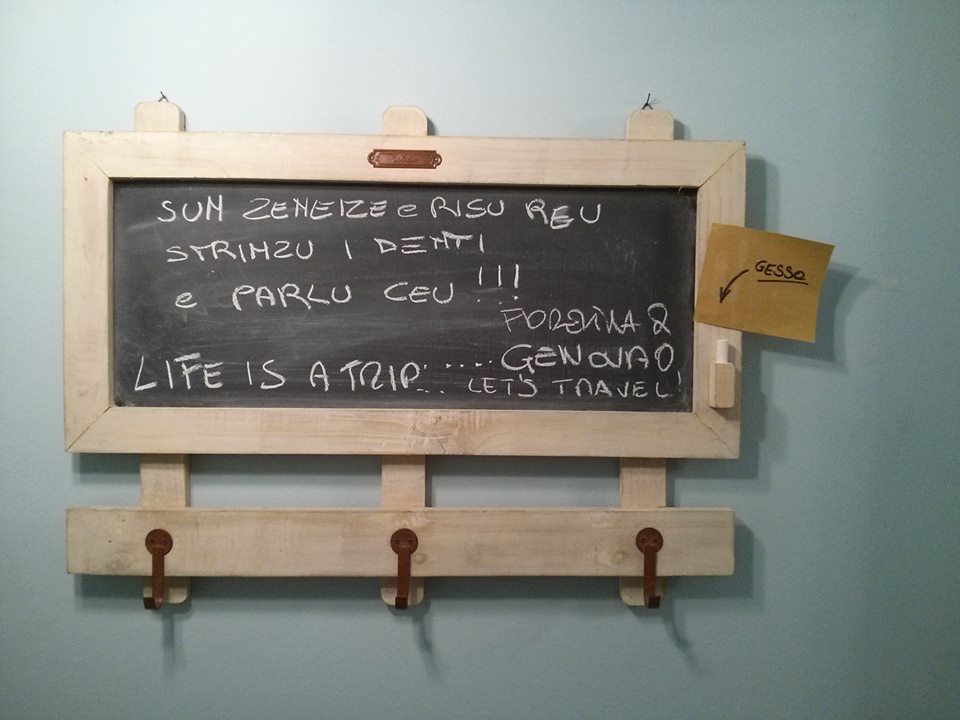 SUN ZENEIZE e RISU REU
STRINZU I DENTI
e PARLU CEU !!!
FIORENTINA 2
GENOVA 0
LIFE IS A TRIP.....
LET'S TRAVEL!
GESSO